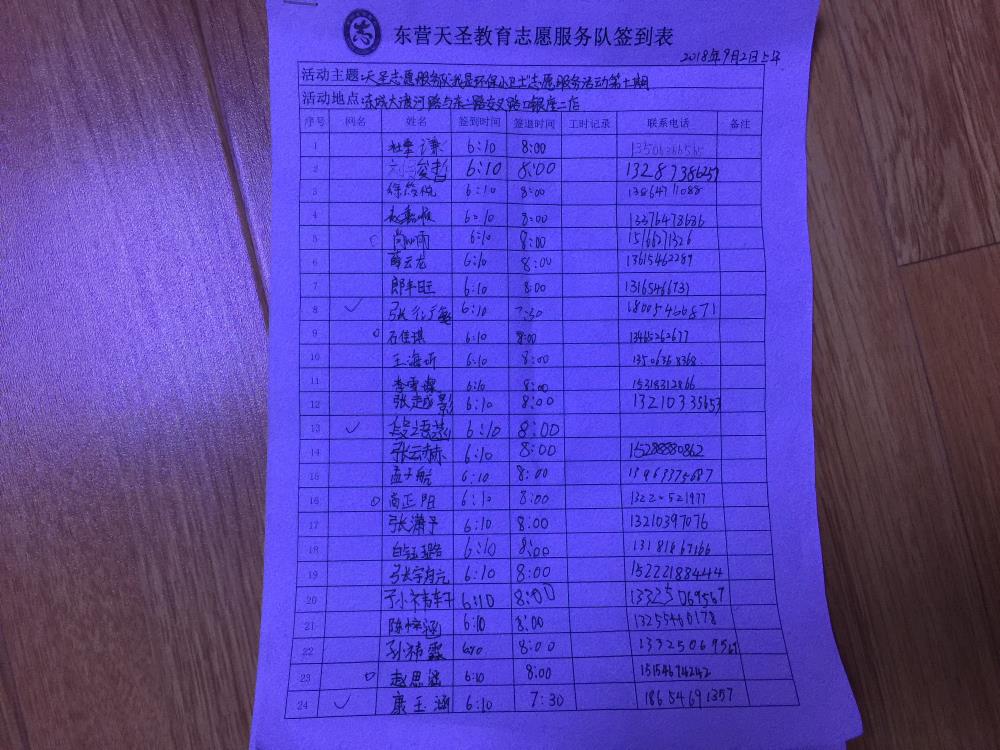 志
东营天圣教育志愿服务队签到表
2018年9月2日上午
活动主题:天圣志愿服务队"我是环保小卫士"志愿服务活动第十期
活动地点:东城大渡河路与东二路交叉路口银座二店
序号 网名 姓名 签到时间 签退时间 工时记录 联系电话 备注
1 谦 6:10 8:00
2 6:10 8:00 13287386257
3 6:10 8:00 13864711088
4 6:10 8:00 13376478686
5 尚 雨 6:10 8:00 1516271326
6 薛云龙 6:10 8:00 13615462289
7 郎丰旺 6:10 8:00 1316546673)
8 ✓ 张 6:10 7:30 18005466871
9 石佳琪 6:10 8:00 13465262677
10 王海 6:10 8:00
11 李雪 6:10 8:00 15318312866
12 张越影 6:10 8:00 13210335653
13 ✓ 段语 6:10 8:00
14 张云赫 6:10 8:00 15288880862
15 孟子航 6:10 8:00 13963375087
16 商正阳 6:10 8:00 13220521977
17 张潇予 6:10 8:00 13210397076
18 白钰璐 6:10 8:00 13181867166
19 张宇 元 6:10 8:00 15222188444
20 6:10 8:00 13325069567
21 陈 涵 6:10 8:00 13255460178
22 孙祎霖 6:10 8:00 13325069567
23 赵思涵 6:10 8:00 15154674242
24 ✓ 康玉涵 6:10 7:30 18654691357